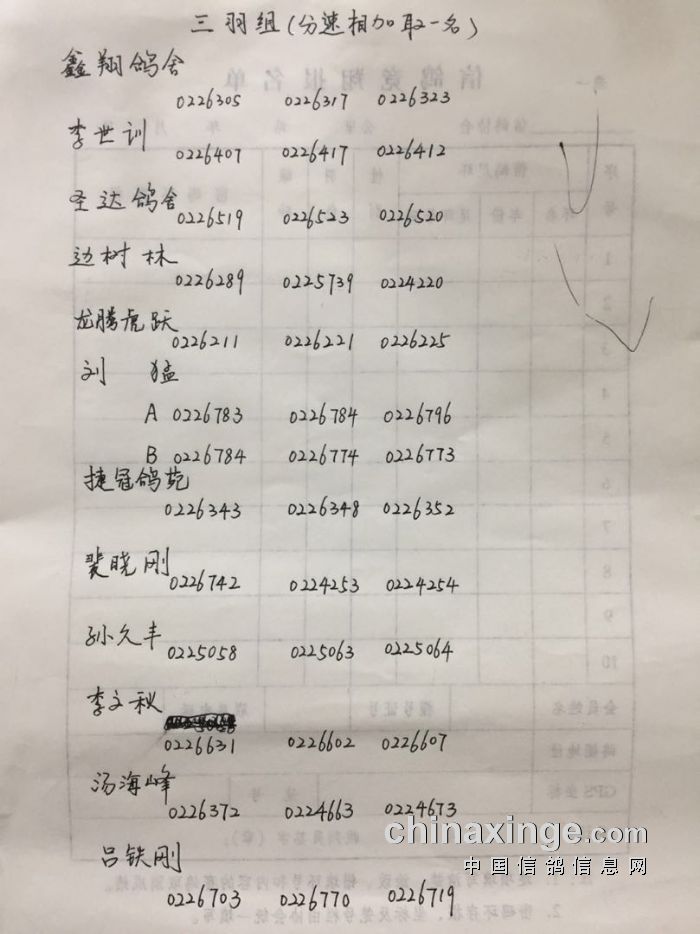 三羽组(分速相加取一名)
鑫翔鸽舍
0226305 0226317 0226323
李世训
0226407 0226417 0226412
圣达鸽舍
0226519 0226523 0226520
边树林
0226289 0225739 0224220
龙腾虎跃
0226211 0226221 0226225
刘 猛
A 0226783 0226784 0226796
B 0226784 0226774 0226773
捷冠鸽苑
0226343 0226348 0226352
裴晓刚
0226742 0224253 0224254
孙久丰
0225058 0225063 0225064
李文秋
0226631 0226602 0226607
汤海峰
0226372 0224663 0224673
吕铁刚
0226703 0226770 0226719
chinaxinge.com
中国信鸽信息网